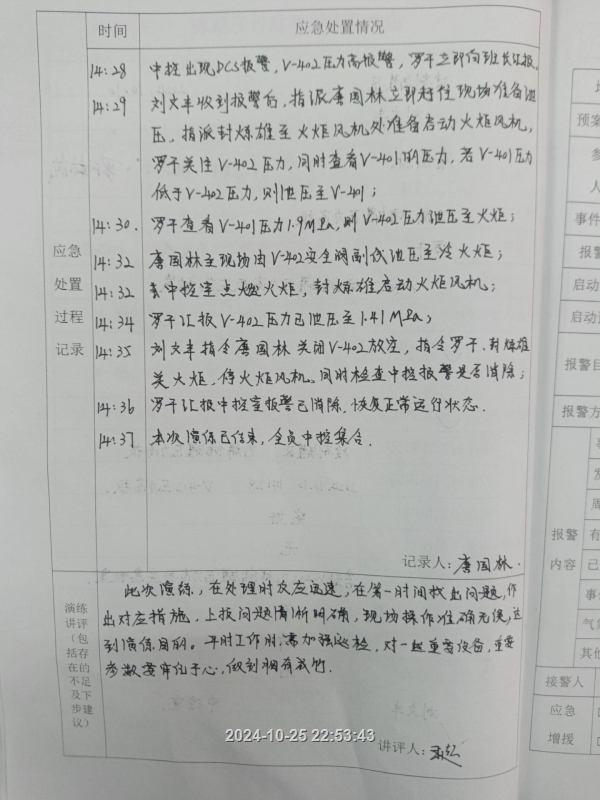 时间 应急处置情况
14:28 中控出现DCS报警，V-402压力高报警，罗干立即向班长汇报。
14:29 刘文丰收到报警后，指派唐国林立即赶往现场准备泄
压，指派封炼雄至火炬风机处准备启动火炬风机，
罗干关注V-402压力，同时查看V-401的压力，若V-401压力
低于V-402压力，则泄压至V-401；
14:30. 罗干查看V-401压力1.9MPa，则V-402压力泄压至火炬；
14:32 唐国林至现场由V-402安全阀副线泄压至冷火炬；
14:32 中控室点燃火炬，封炼雄启动火炬风机；
14:34 罗干汇报V-402压力已泄压至1.41MPa；
14:35 刘文丰指令唐国林关闭V-402放空，指令罗干、封炼雄
关火炬，停火炬风机。同时检查中控报警是否消除；
14:36 罗干汇报中控室报警已消除，恢复正常运行状态.
14:37 本次演练已结束，全员中控集合.
应急
处置
过程
记录
记录人：唐国林.
演练
讲评
（包
括存
在的
不足
及下
步建
议）
此次演练，在处理时反应迅速，在第一时间找出问题，作
出对应措施，上报问题清晰明确，现场操作准确无误，达
到演练目的。平时工作时需加强巡检，对一些重要设备，重要
参数要牢记于心，做到胸有成竹.
讲评人：
2024-10-25 22:53:43
预案
参
人
事件
报警
启动
启动
报警目
报警方
报警
内容
事
发
周
有
已
事件
气象
其他
接警人
应急
增援